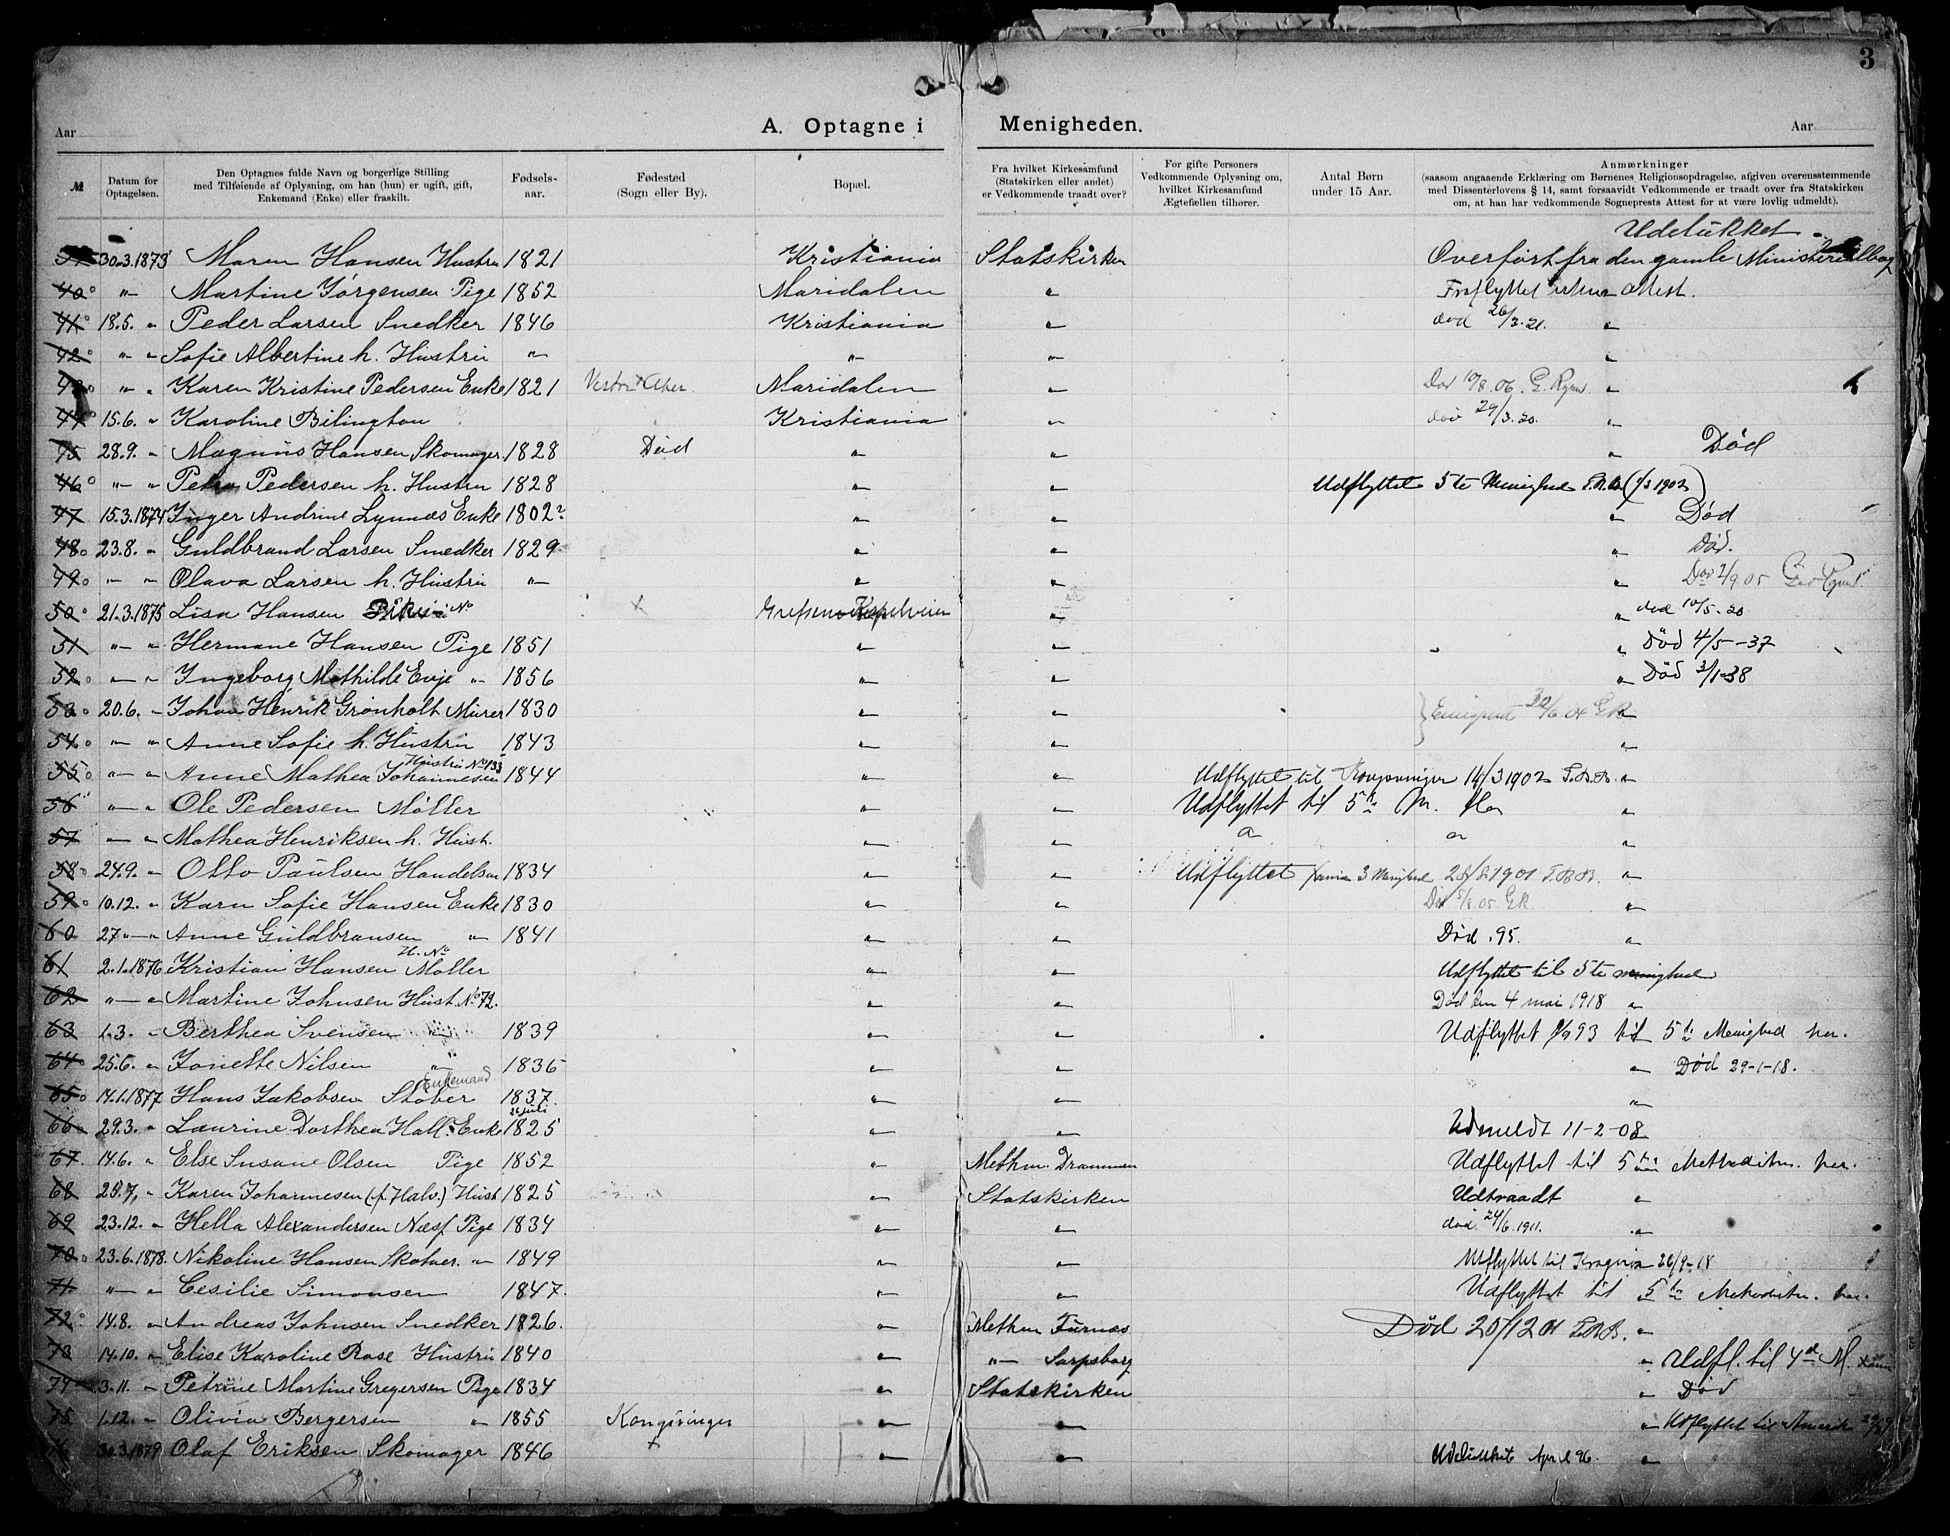 3
Aar
A. Optagne i Menigheden.
Aar
№
Datum for Optagelsen.
Den Optagnes fulde Navn og borgerlige Stilling
med Tilføiende af Oplysning, om han (hun) er ugift, gift,
Enkemand (Enke) eller fraskilt.
Fødsels-
aar.
Fødested
(Sogn eller By).
Bopæl.
Fra hvilket Kirkesamfund
(Statskirken eller andet)
er Vedkommende traadt over?
For gifte Personers
Vedkommende Oplysning om,
hvilket Kirkesamfund
Ægtefællen tilhører.
Antal Børn
under 15 Aar.
Anmærkninger
(saasom angaaende Erklæring om Børnenes Religionsopdragelse, afgiven overensstemmende
med Dissenterlovens § 14, samt forsaavidt Vedkommende er traadt over fra Statskirken
om, at han har vedkommende Sogneprests Attest for at være lovlig udmeldt).
Udelukket
30.3.1873 Maren Hansen Hustru 1821 Kristiania Statskirken Overført fra den gamle Ministerialbog
40 " Martine Jørgensen Pige 1852 Maridalen " Fraflyttet uden Attest.
41 18.5. " Peder Larsen Snedker 1846 Kristiania " død 26/3.21. "
42 " " Sofie Albertine h. Hustru " " " "
43 " " Karen Kristine Pedersen Enke 1821 Vestre Aker Maridalen " Død 10/8.06. "
44 15.6. " Karoline Bilington Kristiania " død 29/3.20. "
45 28.9. " Magnus Hansen Skomager 1828 Død " " " Død
46 " " Petra Pedersen h. Hustru 1828 " " Udflyttet 5te Menighed
47 15.3.1874 Inger Andrine Lynnæs Enke 1802? " " " Død
48 23.8. " Guldbrand Larsen Snedker 1829 " " " Død.
49 " " Olava Larsen h. Hustru " " " "
50 21.3.1875 Lisa Hansen " " død 10/5-20
51 " " Hermane Hansen Pige 1851 " " " Død 4/5-37
52 " " Ingeborg Mathilde Evje " 1856 " " " Død 3/1-38
53 20.6. " Johan Henrik Grønholt Murer 1830 " " "
54 " " Anne Sofie h. Hustru 1843 " " "
Hustru No 133
55 " " Anne Mathea Johannesen 1844 " " Udflyttet til Kongsvinger 14/3 1902 "
56 " " Ole Pedersen Møller " " Udflyttet til 5te M. "
57 " " Mathea Henriksen h. Hust. " " " " "
58 24.9. " Otto Paulsen 1834 " " Udflyttet 3 Menighed 1901 "
59 10.12. " Karn Sofie Hansen Enke 1830 " " "
60 27 " " Anne Guldbransen " 1841 " " Død .95. "
61 2.1.1876 Kristian Hansen Møller " " Udflyttet til 5te menighed
62 " " Martine Johnsen Hust. No 72. " " Død den 4 mai 1918 "
63 1.3. " Berthea Svensen 1839 " " Udflyttet 93 til 5te Menighed her.
64 25.6. " Jonette Nilsen " 1836 " " " Død 29-1-18.
Enkemand
65 14.1.1877 Hans Jakobsen Støber 1837. " " "
26 juli
66 29.3. " Laurine Dorthea Hall. Enke 1825 " " Udmeldt 11-2-08
67. 14.6. " Else Susane Olsen Pige 1852 " Methm. Drammen Udflyttet til 5te her.
68 25.7. " Karen Johannesen (f. Halv.) Hust 1825 " Statskirken Udtraadt "
69 23.12. " Hella Alexandersen Næsf. Pige 1834 " " død. 24/6.1911. "
70 23.6.1878. Nikoline Hansen " 1849 " "
71 " " Cesilie Simonsen 1847. " " Udflyttet til 5te her.
72 14.8. " Andreas Johnsen Snedker 1826. " Methm Furnæs Død "
73 14.10. " Elise Karoline Rose Hustru 1840 " " Sarpsborg " Udfl. til 4de M.
74 3.11. " Petrine Martine Gregersen Pige 1834 " Statskirken " Død
75 1.12. " Olivia Bergersen " 1855 Kongsvinger " " " Udflyttet til Amerik
30.3.1879 Olaf Eriksen Skomager 1846 " " Udelukket April 96. "